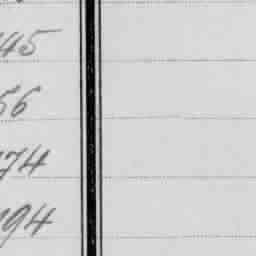 45
56
74
94